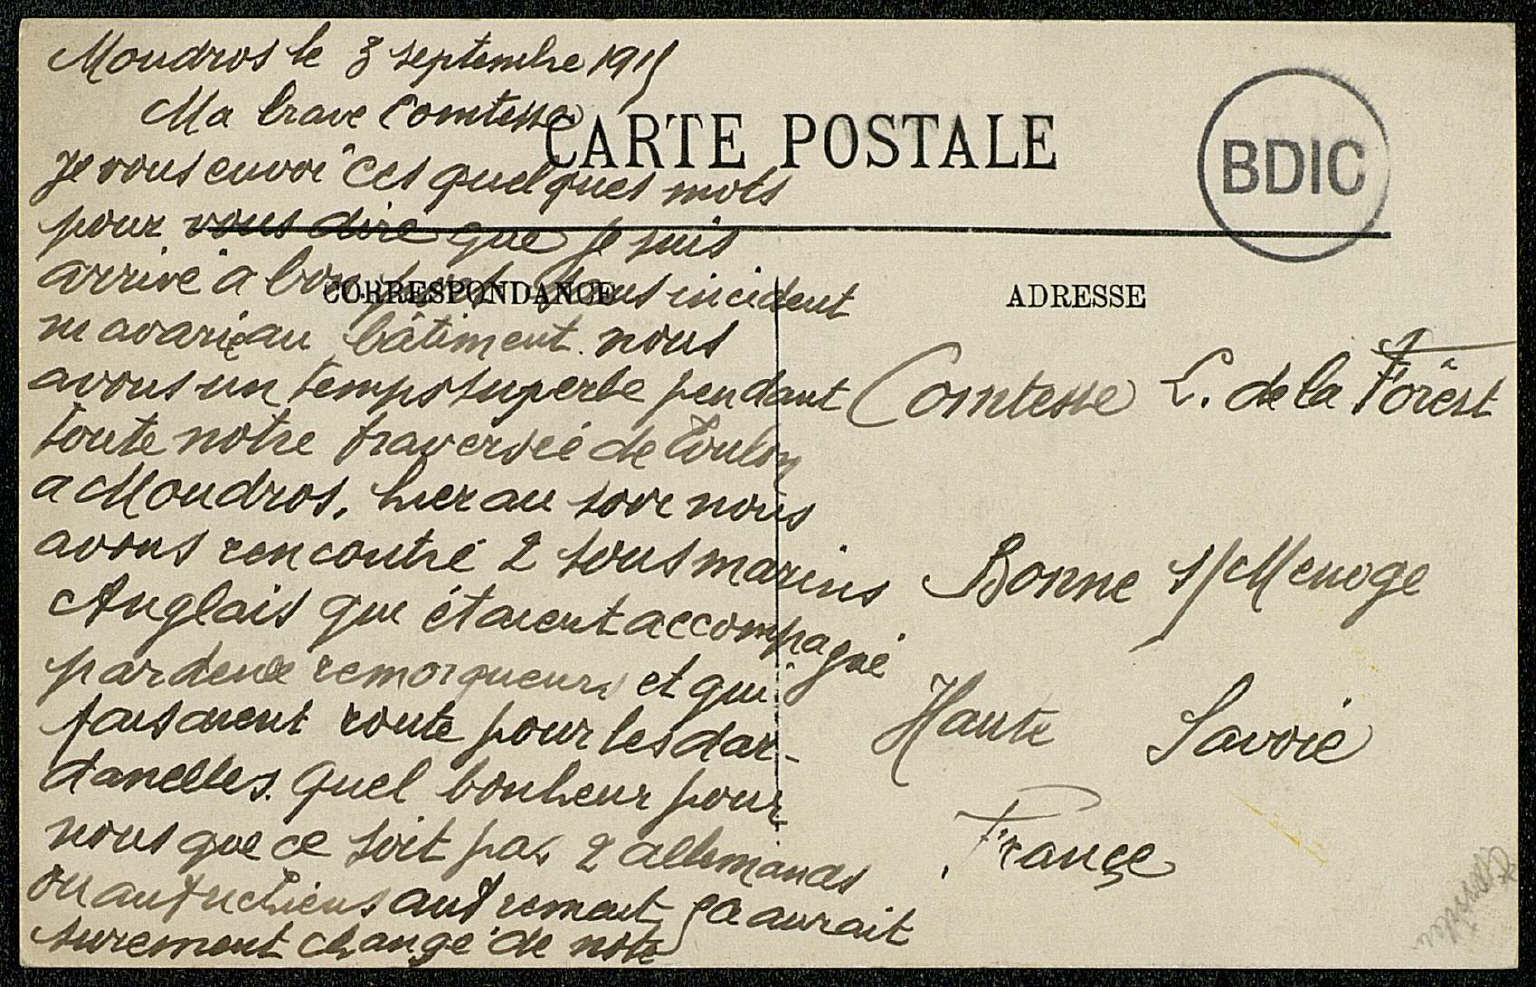 Moudros le 3 septembre 1915
Ma brave Comtesse
CARTE POSTALE
BDIC
Je vous envoi ces quelques mots
pour vous dire que je suis
arrivé a bon port sans incident
CORRESPONDANCE
ni avarie au bâtiment. nous
avons un temps superbe pendant
toute notre traversée de Toulon
a Moudros, hier au soir nous
avons rencontré 2 sous marins
Anglais qui étaient accompagné
par deux remorqueurs et qui
faisaient route pour les dar-
danelles. Quel bonheur pour
nous que ce soit pas 2 allemands
ou autrichiens autrement ça aurait
surement changé de note
ADRESSE
Comtesse L. de la Forêst
Bonne s/ Menoge
Haute Savoie
France